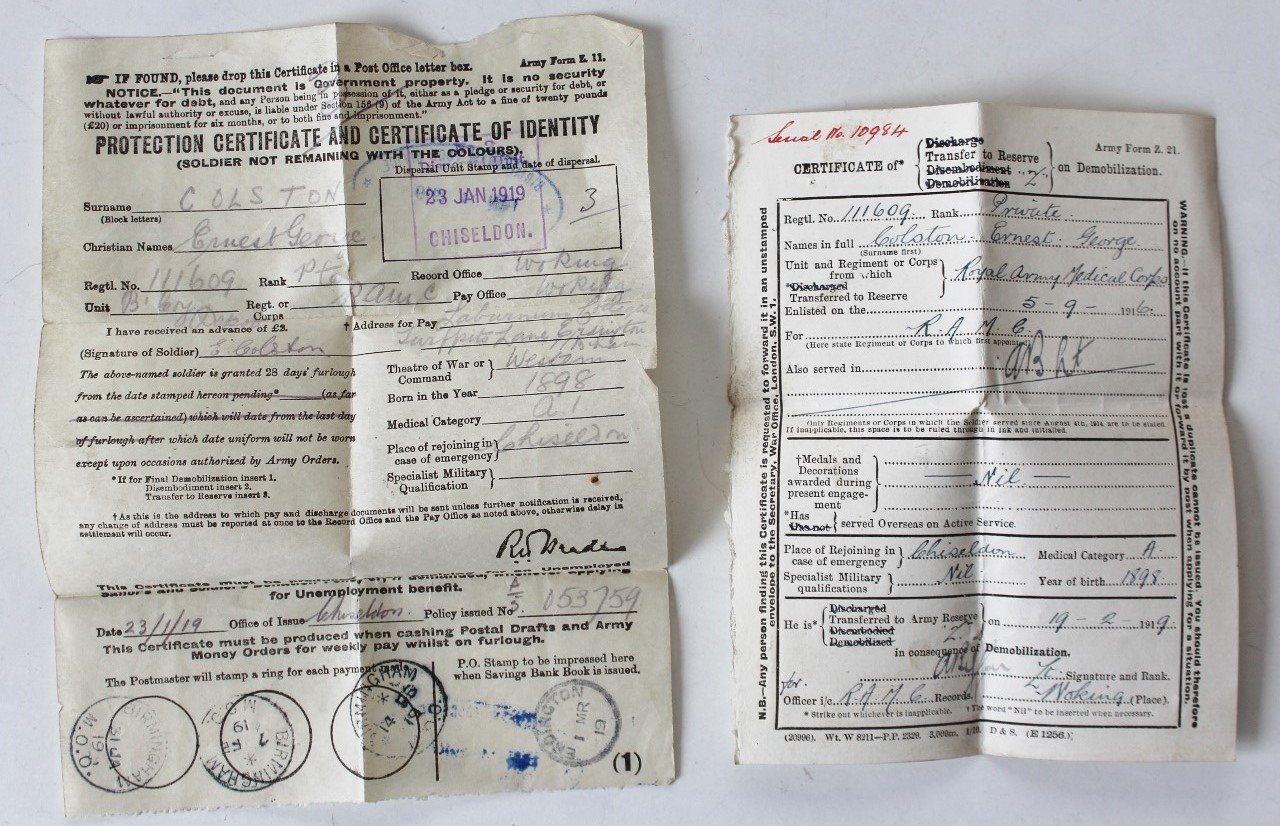 IF FOUND, please drop this Certificate in a Post Office letter box. Army Form Z. 11.
NOTICE.—"This document is Government property. It is no security
whatever for debt, and any Person being in possession of it, either as a pledge or security for debt, or
without lawful authority or excuse, is liable under Section 156 (9) of the Army Act to a fine of twenty pounds
(£20) or imprisonment for six months, or to both fine and imprisonment."
PROTECTION CERTIFICATE AND CERTIFICATE OF IDENTITY
(SOLDIER NOT REMAINING WITH THE COLOURS).
Dispersal Unit Stamp and date of dispersal.
23 JAN 1919
CHISELDON.
3
Surname COLSTON
(Block letters)
Christian Names Ernest George
Regtl. No. 111609 Rank Pte Record Office Woking
Unit B. Regt. or Corps RAMC Pay Office Woking
I have received an advance of £2.
† Address for Pay Laburnum Cottages
Lane Erdington
(Signature of Soldier) E Colston
The above-named soldier is granted 28 days' furlough
from the date stamped hereon pending* (as far
as can be ascertained) which will date from the last day
of furlough after which date uniform will not be worn
except upon occasions authorized by Army Orders.
*If for Final Demobilization insert 1,
Disembodiment insert 2.
Transfer to Reserve insert 3.
Theatre of War or Command Western
Born in the Year 1898
Medical Category A.1
Place of rejoining in case of emergency Chiseldon
Specialist Military Qualification
† As this is the address to which pay and discharge documents will be sent unless further notification is received,
any change of address must be reported at once to the Record Office and the Pay Office as noted above, otherwise delay in
settlement will occur.
This Certificate must be
for Unemployment benefit.
Date 23/1/19 Office of Issue Chiseldon. Policy issued No A/S 053759
This Certificate must be produced when cashing Postal Drafts and Army
Money Orders for weekly pay whilst on furlough.
The Postmaster will stamp a ring for each payment made.
P.O. Stamp to be impressed here
when Savings Bank Book is issued.
BIRMINGHAM M.O.O. 31 JA 19
BIRMINGHAM M.O.O. 7 FE 19
BIRMINGHAM 14 FE 19
ERDINGTON 1 MR 19
(1)
Serial No. 10984
Army Form Z. 21.
CERTIFICATE of*
Discharge
Transfer to Reserve
Disembodiment
Demobilization
Z
on Demobilization.
Regtl. No. 111609 Rank Private
Names in full Colston Ernest George
(Surname first)
Unit and Regiment or Corps
from which
Royal Army Medical Corps
*Discharged
Transferred to Reserve
Enlisted on the 5-9-1916
For R.A.M.C.
(Here state Regiment or Corps to which first appointed)
Also served in
Only Regiments or Corps in which the Soldier served since August 4th, 1914, are to be stated.
If inapplicable, this space is to be ruled through in ink and initialled.
†Medals and
Decorations
awarded during
present engage-
ment
Nil.
*Has
Has not
served Overseas on Active Service.
Place of Rejoining in case of emergency Chiseldon Medical Category A.
Specialist Military qualifications Nil Year of birth 1898
He is*
Discharged
Transferred to Army Reserve
Disembodied
Demobilized
Z
on 19-2-1919
in consequence of Demobilization.
Signature and Rank.
for
Officer i/c R.A.M.C. Records. Woking (Place).
* Strike out whichever is inapplicable. † The word "Nil" to be inserted when necessary.
(20996). Wt. W 8211—P.P. 2329. 3,000m. 1/19. D & S. (E 1256.)
N.B.—Any person finding this Certificate is requested to forward it in an unstamped
envelope to the Secretary, War Office, London, S.W. 1.
WARNING.—If this Certificate is lost a duplicate cannot be issued. You should therefore
on no account part with it or forward it by post when applying for a situation.